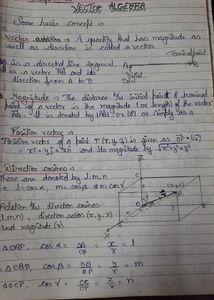 VECTOR ALGEBRA
Some basic concept :-
Vector : A quantity that has magnitude as
well as direction is called a vector.
Terminal point
is a directed line segment. A B
is a vector AB and its
direction from A to B
Initial
Magnitude : The distance b/w initial & terminal
point of a vector is the magnitude (or length) of the vector
AB. It is denoted by |AB| or |a| or simply as a
Position vector :-
Position vector of a point P(x, y, z) is given as OP
= xî + yĵ + zk̂ and its magnitude by √x²+y²+z²
Direction cosines
These are denoted by l, m, n
i.e. l = cos α, m = cos β, n = cos γ
Relation b/w direction cosines
(l, m, n), direction ratios (x, y, z)
and magnitude (r)
Δ OAP, cos α = OA/OP = x/r = l
Δ OBP, cos β = OB/OP = y/r = m
Δ OCP, cos γ = OC/OP = z/r = n